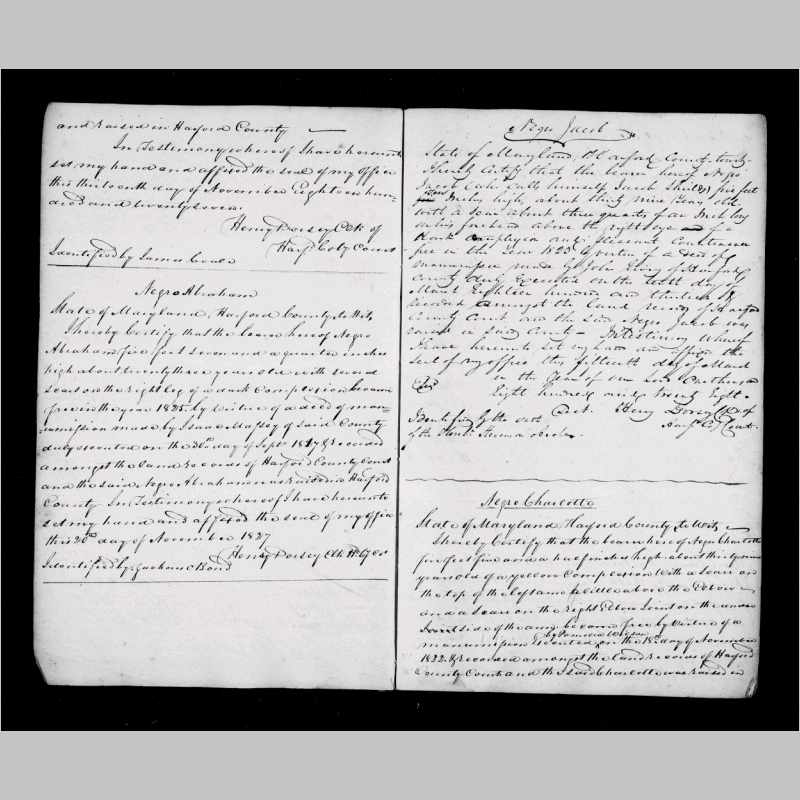 and raised in Harford County
In Testimony whereof I have hereunto
set my hand and affixed the seal of my office
this thirteenth day of November Eighteen hun-
dred and twenty seven.
Henry Dorsey Clk of
Harfd Coty Court
Identified by James
Negro Abraham
State of Maryland, Harford County to Wit,
I hereby Certify that the bearer hereof Negro
Abraham five feet seven and a quarter inches
high about twenty three years old with several
scars on the right leg of a dark Complexion became
free in the year 1825 by Virtue of a deed of man-
umission made by Isaac Massey of Said County
duly executed on the day of Septr 1817 & recorded
amongst the land records of Harford County Court
and the said Negro Abraham was Raised in Harford
County In Testimony whereof I have hereunto
set my hand and affixed the seal of my office
this 20th day of November 1827
Henry Dorsey Clk H Cy Ct
Identified by Bond
Negro Jacob
State of Maryland, Harford County to wit
I hereby Certify that the bearer hereof Negro
Jacob who Calls himself Jacob five feet
Inches high, about thirty Nine Years old
with a scar about three quarters of an Inch long
on his forehead above the right eye of a
Complexion and pleasant Countenance
free in the Year 1823 by virtue of a deed of
manumission made by John of Harford
County duly Executed on the tenth day of
March Eighteen hundred and thirteen &
recorded amongst the land records of Harford
County Court and the said Negro Jacob was
raised in said County In testimony whereof
I have hereunto set my hand and affixed the
seal of my office this fifteenth day of March
in the Year of our Lord Eighteen
Eight hundred and twenty Eight.
Henry Dorsey Clk of
Harfd Cy Court.
Identified by the oath
of
Negro Charlotte
State of Maryland Harford County to Wit,
I hereby Certify that the bearer hereof Negro Charlotte
five feet five and a half inches high about thirty nine
years old of a yellow Complexion with a scar on
the top of the left arm a little above the Elbow
and a scar on the right Elbow Joint on the under
side of the arm became free by Virtue of a
manumission executed by on the 18th day of November
1822 & recorded amongst the land records of Harford
County Court and the said Charlotte was raised in